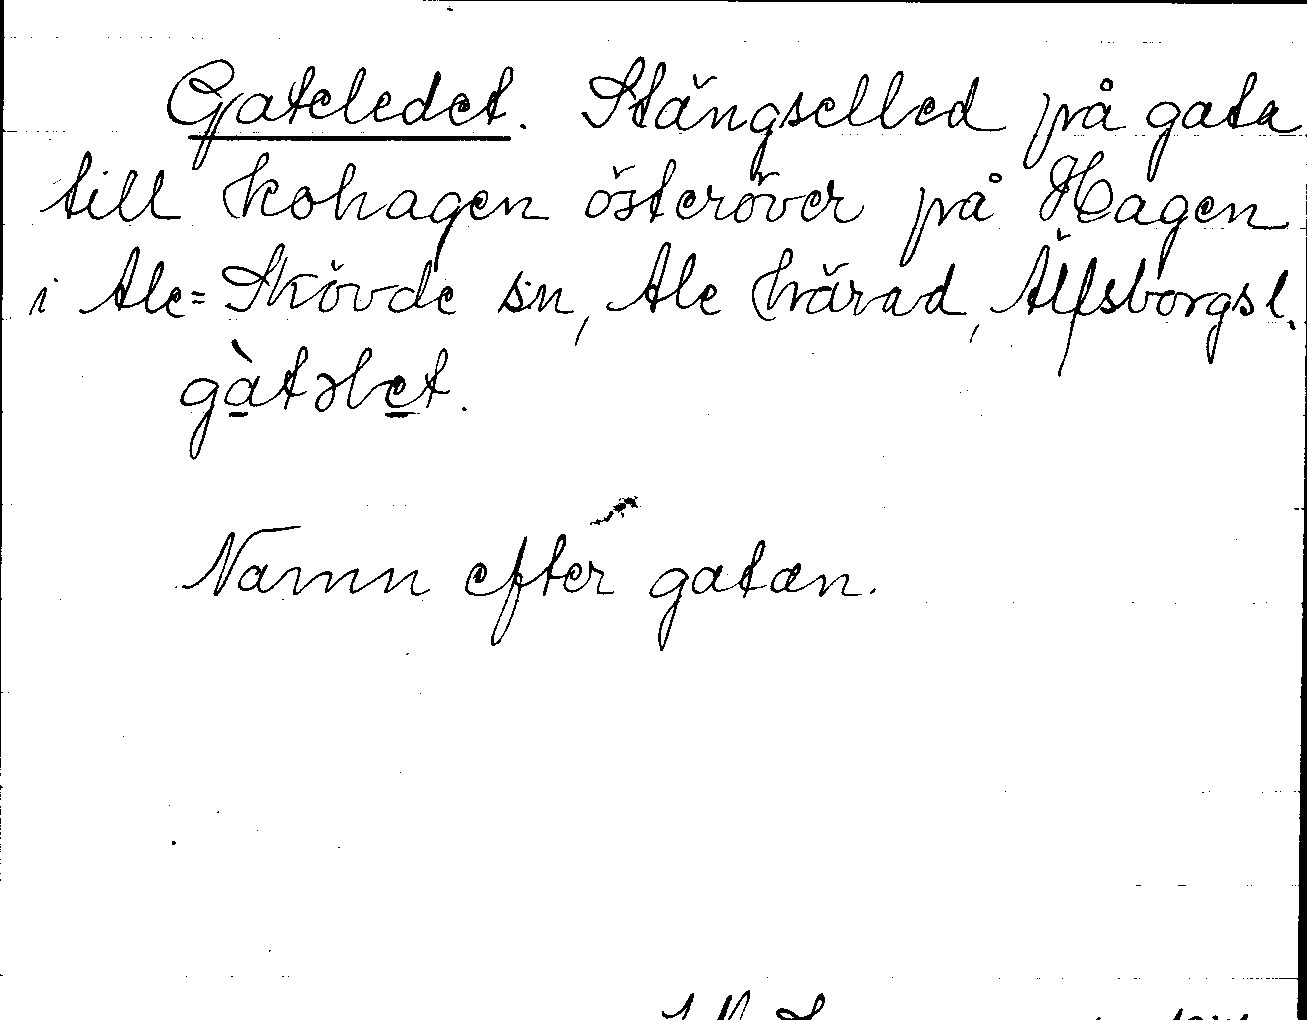 Gateledet. Stängselled på gata
till kohagen österöver på Hagen
i Ale=Skövde sn, Ale härad, Älfsborgsl.
gàtəlet.
Namn efter gatan.